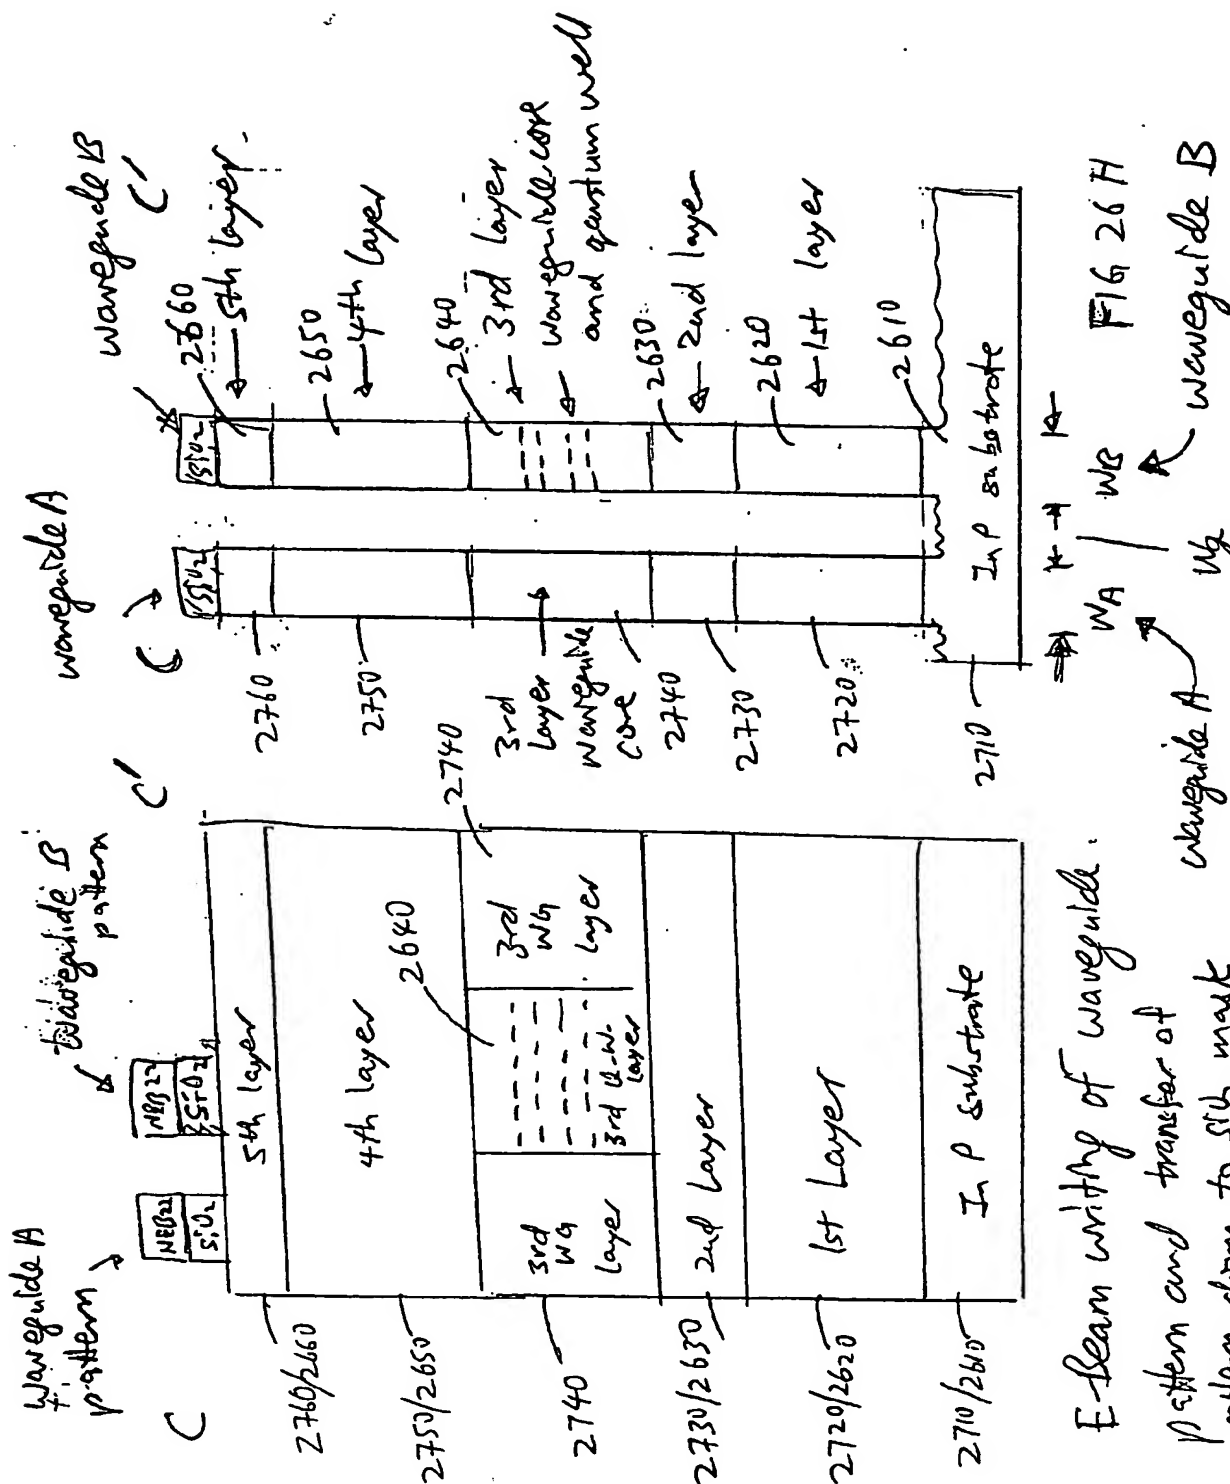 Waveguide A
pattern
Waveguide B
pattern
C
C'
NEB22
SiO2
NEB22
SiO2
5th layer
4th layer
3rd
WG
layer
3rd Q-W.
layer
3rd
WG
layer
2nd Layer
1st Layer
InP substrate
2760/2660
2750/2650
2740
2730/2630
2720/2620
2710/2610
2640
2740
E-Beam writing of waveguide.
pattern and transfer of
waveguide A
waveguide B
C
C'
SiO2
SiO2
2660
5th layer.
2650
4th layer
2640
3rd layer
waveguide core
and quantum well
2630
2nd layer
2620
1st layer
2610
2760
2750
3rd
layer
waveguide
core
2740
2730
2720
2710
InP substrate
WA
Wg
WB
waveguide A
waveguide B
FIG 26H